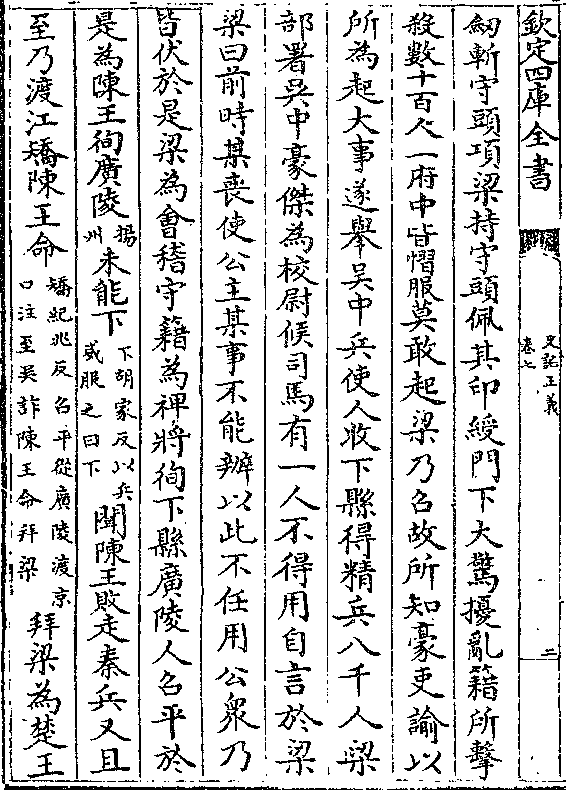 欽定四庫全書
史記正義
卷七
二
劒斬守頭項梁持守頭佩其印綬門下大驚擾亂籍所擊
殺數十百人一府中皆慴服莫敢起梁乃召故所知豪吏諭以
所為起大事遂舉吳中兵使人收下縣得精兵八千人梁
部署吳中豪傑為校尉候司馬有一人不得用自言於梁
梁曰前時某喪使公主某事不能辦以此不任用公衆乃
皆伏於是梁為會稽守籍為裨將徇下縣廣陵人召平於
是為陳王徇廣陵揚州未能下下胡嫁反以兵威服之曰下聞陳王敗走秦兵又且
至乃渡江矯陳王命矯紀兆反召平從廣陵渡京口注至吳詐陳王命拜梁拜梁為楚王